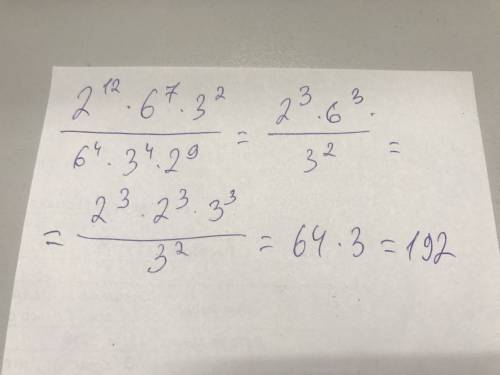 2¹² · 6⁷ · 3² / 6⁴ · 3⁴ · 2⁹ = 2³ · 6³ · / 3² =
= 2³ · 2³ · 3³ / 3² = 64 · 3 = 192